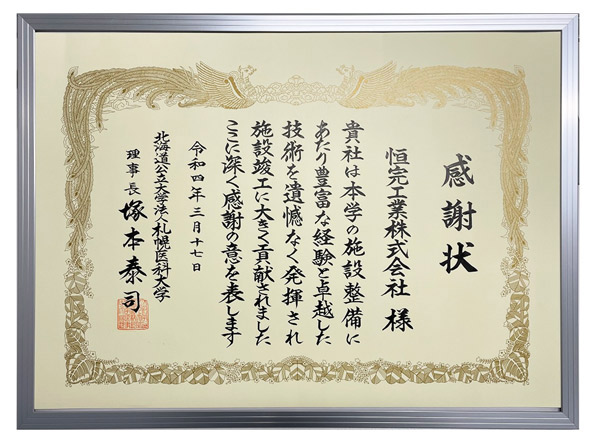 感謝状
恒完工業株式会社 様
貴社は本学の施設整備に
あたり豊富な経験と卓越した
技術を遺憾なく発揮され
施設竣工に大きく貢献されました
ここに深く感謝の意を表します
令和四年三月十七日
北海道公立大学法人札幌医科大学
理事長 塚本泰司